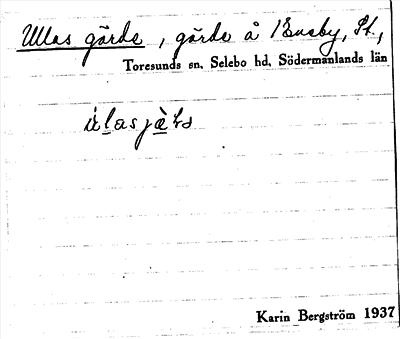 Ullas gärde, gärde å Husby, St.,
Toresunds sn, Selebo hd, Södermanlands län
Karin Bergström 1937